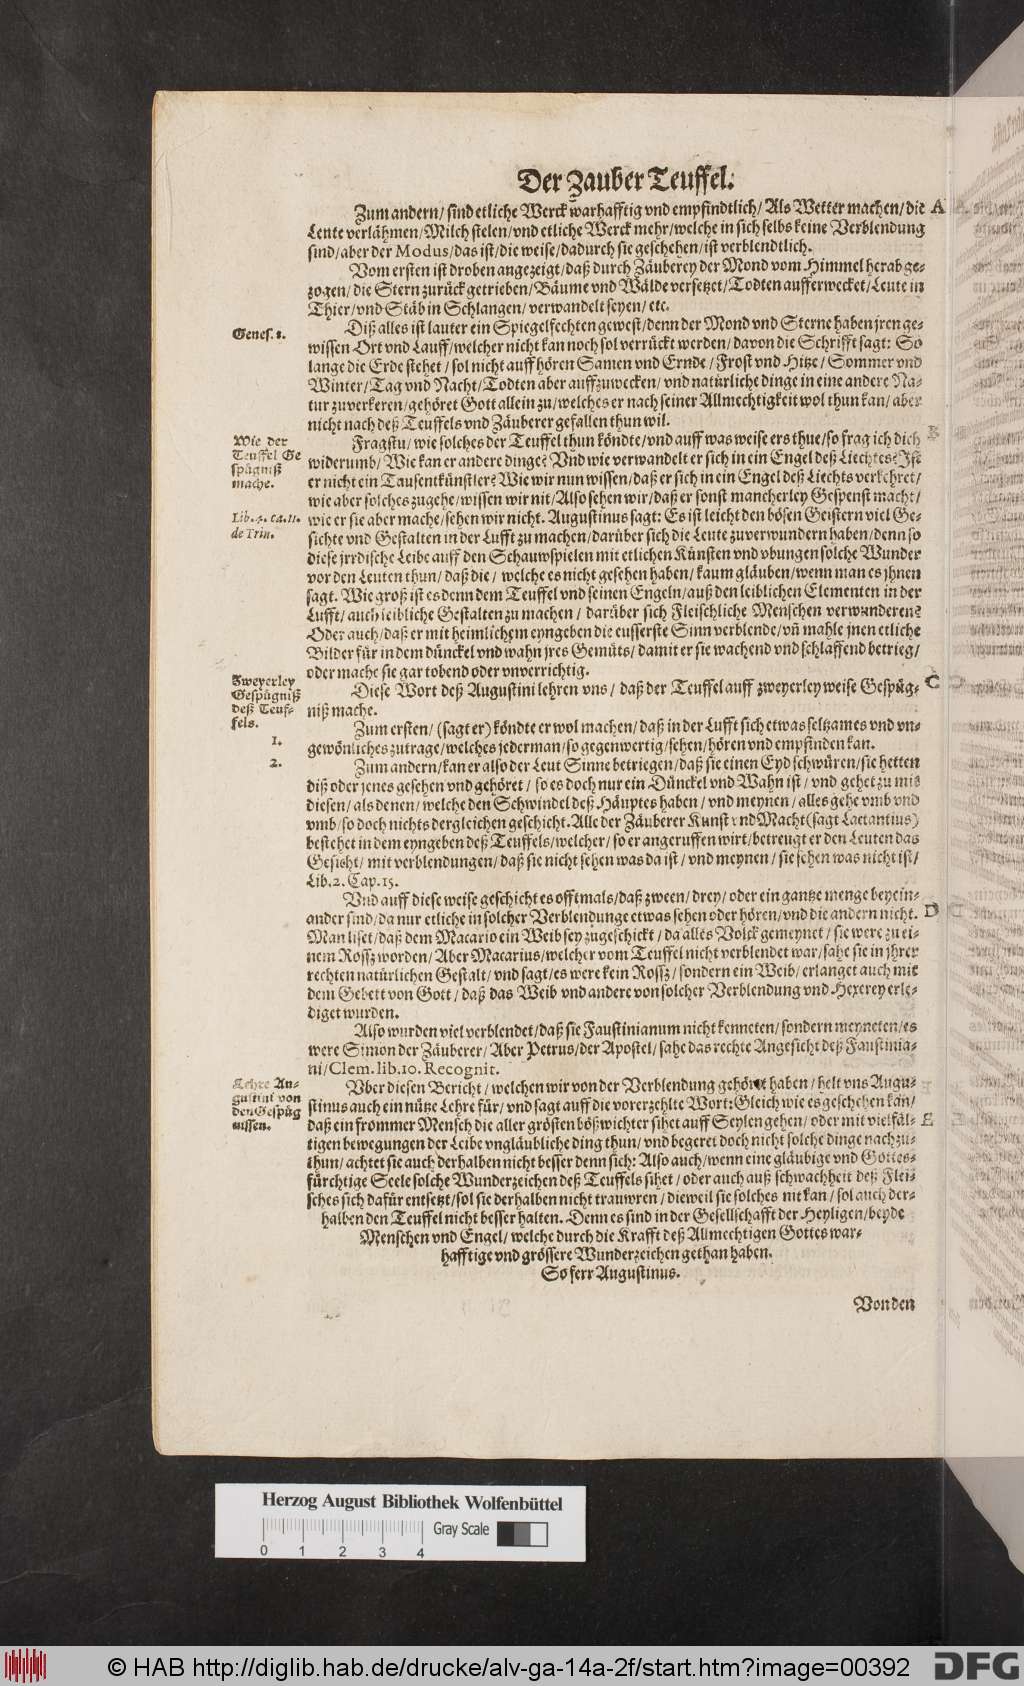 Der Zauber Teuffel.
Zum andern/ sind etliche Werck warhafftig vnd empfindtlich/ Als Wetter machen/ die A
Leute verlähmen/ Milch stelen/ vnd etliche Werck mehr/ welche in sich selbs keine Verblendung
sind/ aber der Modus/ das ist/ die weise/ dadurch sie geschehen/ ist verblendtlich.
Vom ersten ist droben angezeigt/ daß durch Zäuberey der Mond vom Himmel herab ge-
zogen/ die Stern zurück getrieben/ Bäume vnd Wälde versetzet/ Todten aufferwecket/ Leute in
Thier/ vnd Stäb in Schlangen/ verwandelt seyen/ etc.
Genes. 1.
Diß alles ist lauter ein Spiegelfechten gewest/ denn der Mond vnd Sterne haben jren ge-
wissen Ort vnd Lauff/ welcher nicht kan noch sol verrückt werden/ davon die Schrifft sagt: So
lange die Erde stehet/ sol nicht auff hören Samen vnd Ernde/ Frost vnd Hitze/ Sommer vnd
Winter/ Tag vnd Nacht/ Todten aber auffzuwecken/ vnd natürliche dinge in eine andere Na-
tur zuverkeren/ gehöret Gott allein zu/ welches er nach seiner Allmechtigkeit wol thun kan/ aber
nicht nach deß Teuffels vnd Zäuberer gefallen thun wil.
Wie der
Teuffel Ge
spügniß
mache.
Fragstu/ wie solches der Teuffel thun köndte/ vnd auff was weise ers thue/ so frag ich dich B
widerumb/ Wie kan er andere dinge? Vnd wie verwandelt er sich in ein Engel deß Liechtes? Ist
er nicht ein Tausentkünstler? Wie wir nun wissen/ daß er sich in ein Engel deß Liechts verkehret/
wie aber solches zugehe/ wissen wir nit/ Also sehen wir/ daß er sonst mancherley Gespenst macht/
Lib. 4. ca. 11.
de Trin.
wie er sie aber mache/ sehen wir nicht. Augustinus sagt: Es ist leicht den bösen Geistern viel Ge-
sichte vnd Gestalten in der Lufft zu machen/ darüber sich die Leute zuverwundern haben/ denn so
diese jrrdische Leibe auff den Schauwspielen mit etlichen Künsten vnd vbungen solche Wunder
vor den Leuten thun/ daß die/ welche es nicht gesehen haben/ kaum gläuben/ wenn man es jhnen
sagt. Wie groß ist es denn dem Teuffel vnd seinen Engeln/ auß den leiblichen Elementen in der
Lufft/ auch leibliche Gestalten zu machen/ darüber sich Fleischliche Menschen verwunderen?
Oder auch/ daß er mit heimlichem eyngeben die eusserste Sinn verblende/ vñ mahle jnen etliche
Bilder für in dem dünckel vnd wahn jres Gemüts/ damit er sie wachend vnd schlaffend betrieg/
oder mache sie gar tobend oder vnverrichtig.
Zweyerley
Gespügniß
deß Teuf-
fels.
Diese Wort deß Augustini lehren vns/ daß der Teuffel auff zweyerley weise Gespüg- C
niß mache.
1.
Zum ersten/ (sagt er) köndte er wol machen/ daß in der Lufft sich etwas seltzames vnd vn-
gewönliches zutrage/ welches jederman/ so gegenwertig/ sehen/ hören vnd empfinden kan.
2.
Zum andern/ kan er also der Leut Sinne betriegen/ daß sie einen Eyd schwüren/ sie hetten
diß oder jenes gesehen vnd gehöret/ so es doch nur ein Dünckel vnd Wahn ist/ vnd gehet zu mit
diesen/ als denen/ welche den Schwindel deß Häuptes haben/ vnd meynen/ alles gehe vmb vnd
vmb/ so doch nichts dergleichen geschicht. Alle der Zäuberer Kunst vnd Macht (sagt Lactantius)
bestehet in dem eyngeben deß Teuffels/ welcher/ so er angeruffen wirt/ betreugt er den Leuten das
Gesicht/ mit verblendungen/ daß sie nicht sehen was da ist/ vnd meynen/ sie sehen was nicht ist/
Lib. 2. Cap. 15.
Vnd auff diese weise geschicht es offtmals/ daß zween/ drey/ oder ein gantze menge beyein-
ander sind/ da nur etliche in solcher Verblendunge etwas sehen oder hören/ vnd die andern nicht. D
Man liset/ daß dem Macario ein Weib sey zugeschickt/ da alles Volck gemeynet/ sie were zu ei-
nem Rossz worden/ Aber Macarius/ welcher vom Teuffel nicht verblendet war/ sahe sie in jhrer
rechten natürlichen Gestalt/ vnd sagt/ es were kein Rossz/ sondern ein Weib/ erlanget auch mit
dem Gebett von Gott/ daß das Weib vnd andere von solcher Verblendung vnd Hexerey erle-
diget wurden.
Also wurden viel verblendet/ daß sie Faustinianum nicht kenneten/ sondern meyneten/ es
were Simon der Zäuberer/ Aber Petrus/ der Apostel/ sahe das rechte Angesicht deß Faustinia-
ni/ Clem. lib. 10. Recognit.
Lehre Au-
gustini von
den Gespüg
nissen.
Vber diesen Bericht/ welchen wir von der Verblendung gehöret haben/ helt vns Augu-
stinus auch ein nütze Lehre für/ vnd sagt auff die vorerzehlte Wort: Gleich wie es geschehen kan/
daß ein frommer Mensch die aller grösten bößwichter sihet auff Seylen gehen/ oder mit vielfäl- E
tigen bewegungen der Leibe vngläubliche ding thun/ vnd begeret doch nicht solche dinge nachzu-
thun/ achtet sie auch derhalben nicht besser denn sich: Also auch/ wenn eine gläubige vnd Gottes-
fürchtige Seele solche Wunderzeichen deß Teuffels sihet/ oder auch auß schwachheit deß Flei-
sches sich dafür entsetzt/ sol sie derhalben nicht trauwren/ dieweil sie solches nit kan/ sol auch der-
halben den Teuffel nicht besser halten. Denn es sind in der Gesellschafft der Heyligen/ beyde
Menschen vnd Engel/ welche durch die Krafft deß Allmechtigen Gottes war-
hafftige vnd grössere Wunderzeichen gethan haben.
So ferr Augustinus.
Von den
Herzog August Bibliothek Wolfenbüttel
Gray Scale
0 1 2 3 4
© HAB http://diglib.hab.de/drucke/alv-ga-14a-2f/start.htm?image=00392
DFG